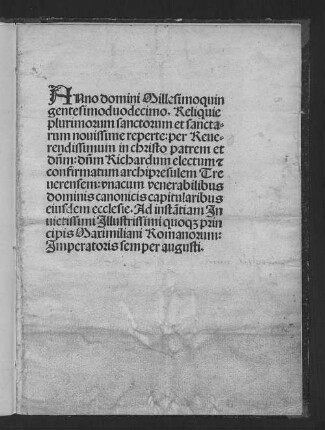 Anno domini Millesimoquin
gentesimoduodecimo. Reliquie
plurimorum sanctorum et sancta-
rum nouissime reperte: per Reue-
rendissimum in christo patrem et
dn̄m: dn̄m Richardum electum ⁊
confirmatum archipresulem Tre
uerensem: vnacum venerabilibus
dominis canonicis capitularibus
eiusdem ecclesie. Ad instātiam In
uictissimi Illustrissimi quoqꝫ prin
cipis Maximiliani Romanorum:
Imperatoris semper augusti.